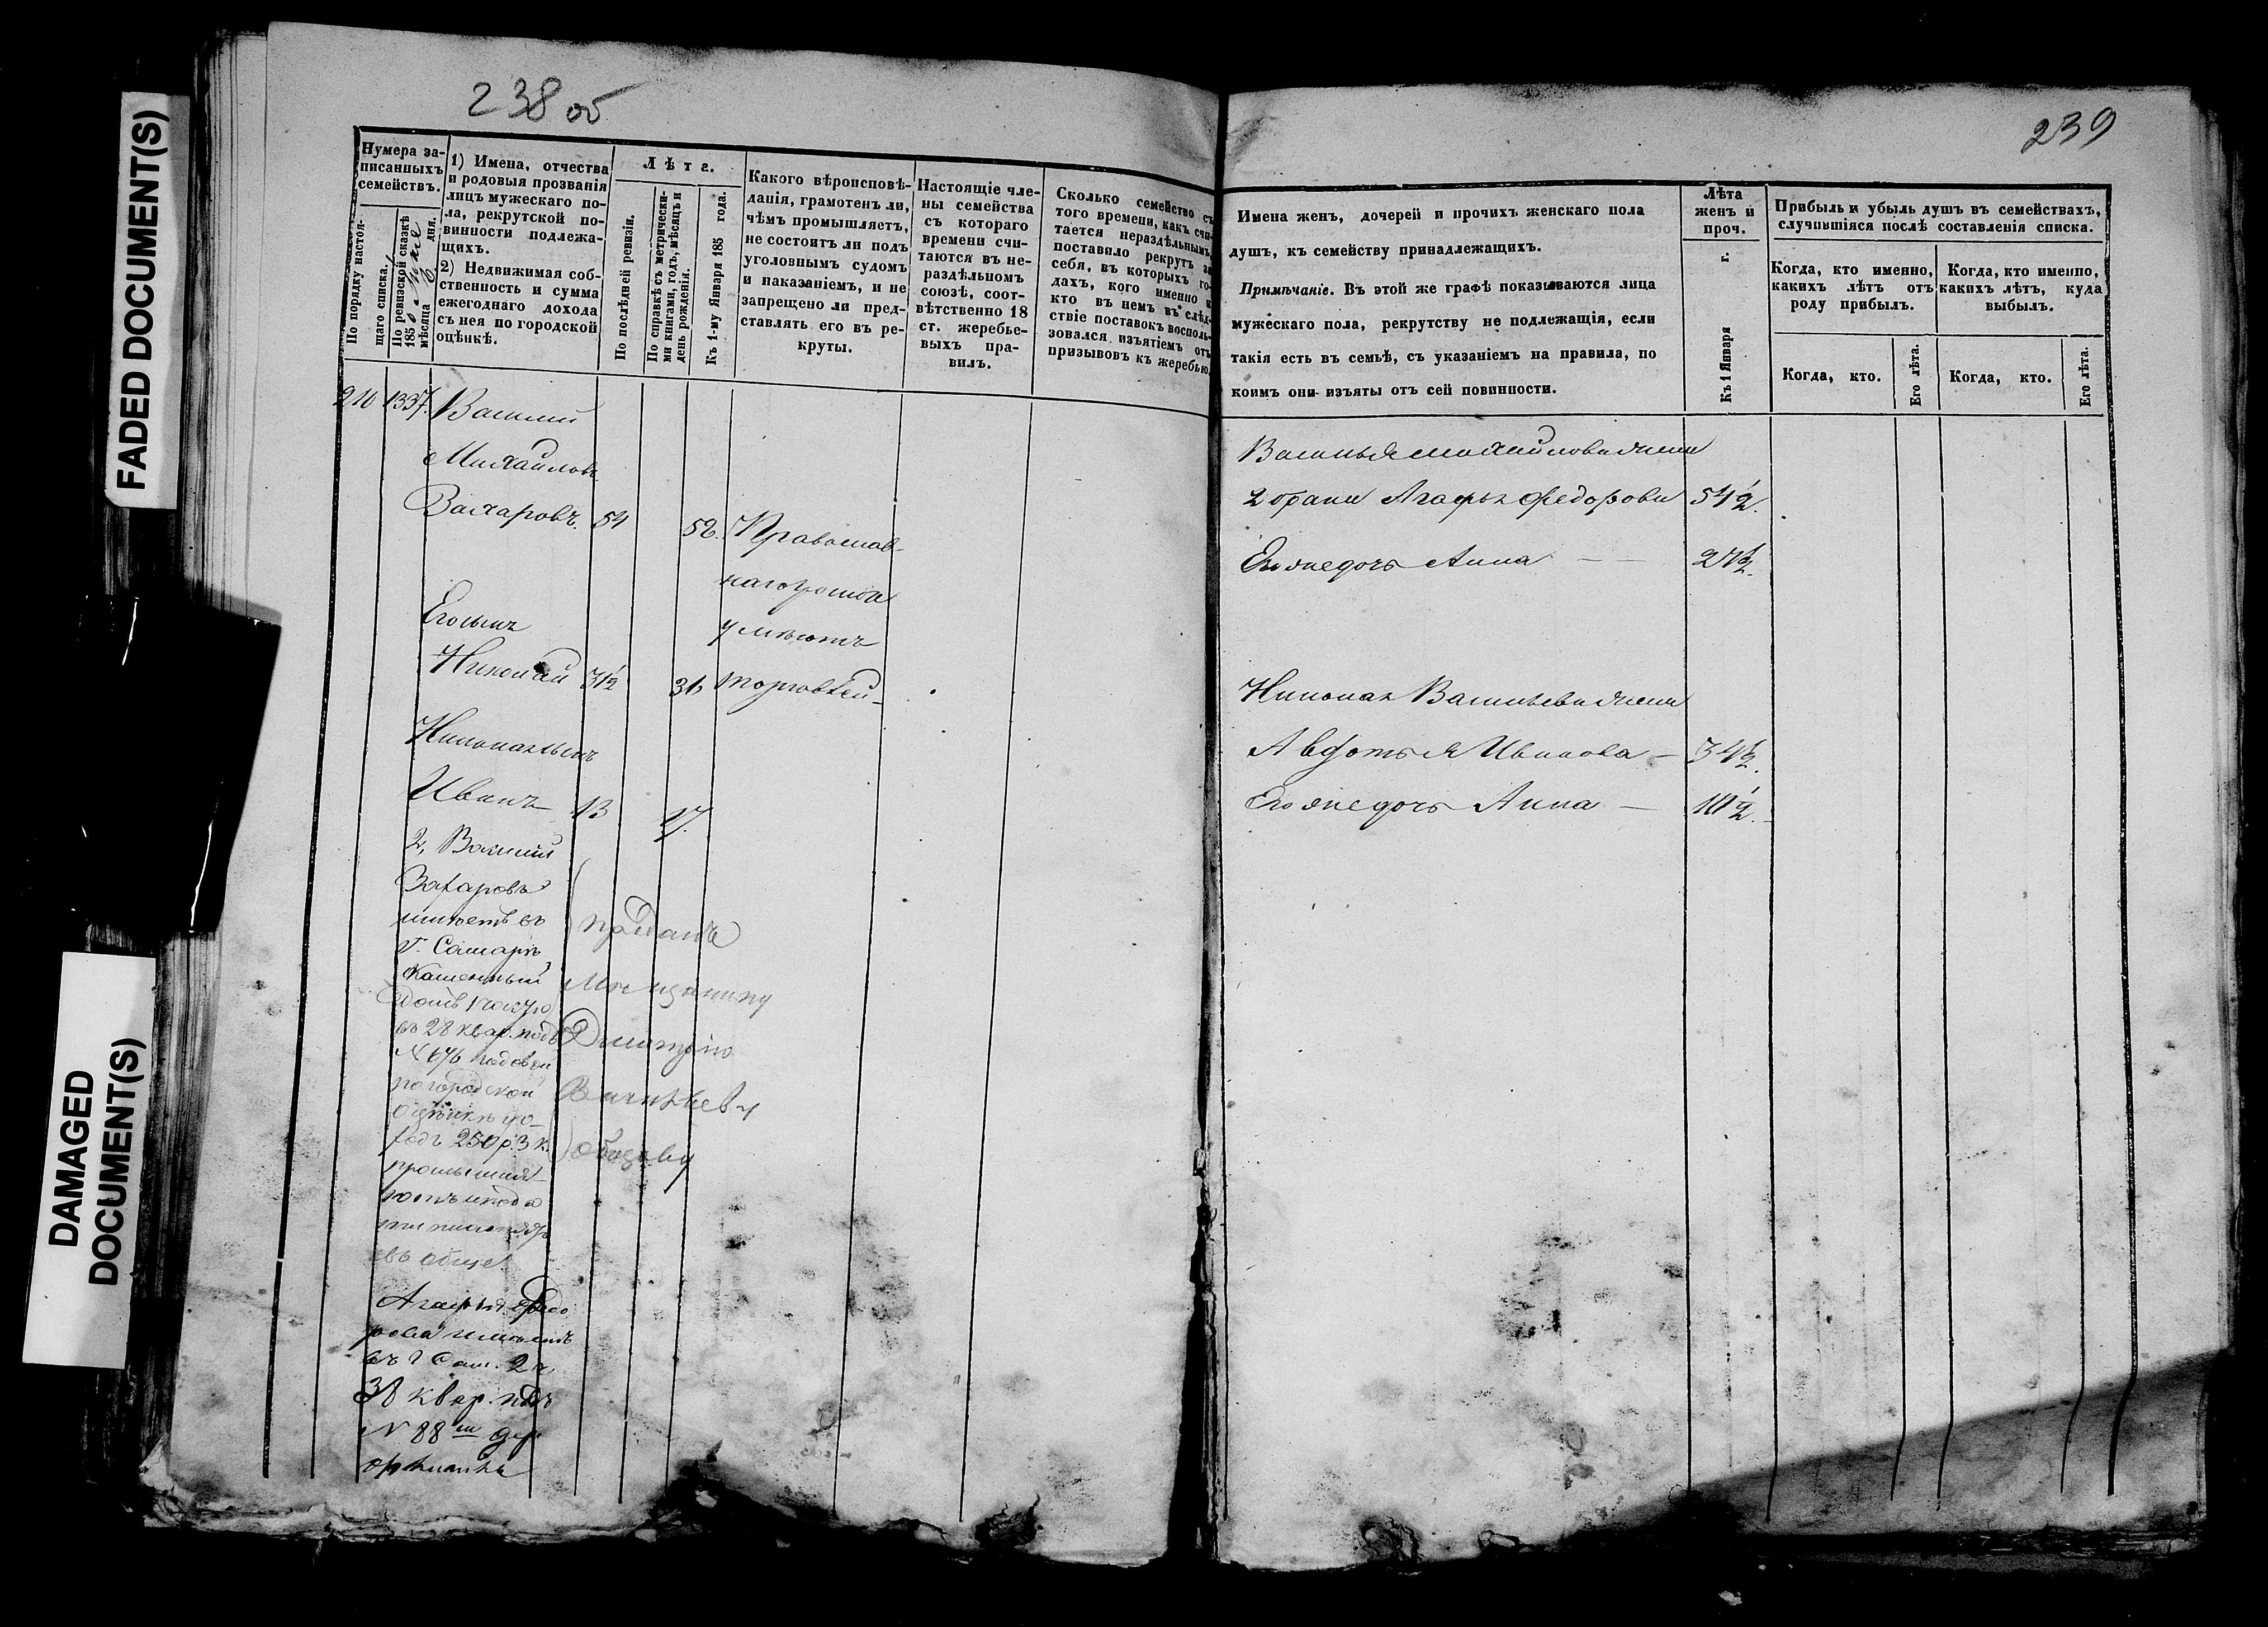 FADED DOCUMENT(S)
DAMAGED
DOCUMENT(S)
238 об
Нумера за-
писанныхъ
семействъ.
По порядку настоя-
щаго списка.
По ревизской сказкѣ
185 года
мѣсяца дня.
1) Имена, отчества
и родовыя прозванія
лицъ мужескаго по-
ла, рекрутской по-
винности подлежа-
щихъ.
2) Недвижимая соб-
ственность и сумма
ежегоднаго дохода
съ нея по городской
оцѣнкѣ.
Лѣта.
По послѣдней ревизіи.
По справкѣ съ метрически-
ми книгами, годъ, мѣсяцъ и
день рожденія.
Къ 1-му Января 185 года.
Какого вѣроисповѣ-
данія, грамотенъ ли,
чѣмъ промышляетъ,
не состоитъ ли подъ
уголовнымъ судомъ
и наказаніемъ, и не
запрещено ли пред-
ставлять его въ ре-
круты.
Настоящіе чле-
ны семейства
съ котораго
времени счи-
таются въ не-
раздѣльномъ
союзѣ, соот-
вѣтственно 18
ст. жеребье-
выхъ пра-
вилъ.
Сколько семейство съ
того времени, какъ счи-
тается нераздѣльнымъ,
поставило рекрутъ за
себя, въ которыхъ го-
дахъ, кого именно и
кто въ немъ въ слѣд-
ствіе поставокъ восполь-
зовался изъятіемъ отъ
призывовъ къ жеребью.
210 1337. Василий
Михайловъ
Захаровъ. 54 58. Православ-
наго грамотѣ
умѣютъ
Его сынъ
Николай 31½ 36 торговлей
Николая сынъ
Иванъ 13 17.
2, Василий
Захаровъ
имѣетъ въ
г. Самарѣ
Каменный
домъ 1 части
въ 28 квар. подъ
N 676
по городской
оцѣнкѣ до-
ходъ 250 р. 3 к.
въ общес.
проданъ
Мѣщанину
Дмитрію
Васильеву
Агафья Ѳедо
рова имѣетъ
въ г Сам. 2 ч.
38 квар. подъ
N 88
239
Имена женъ, дочерей и прочихъ женскаго пола
душъ, къ семейству принадлежащихъ.
Примѣчаніе. Въ этой же графѣ показываются лица
мужескаго пола, рекрутству не подлежащія, если
такія есть въ семьѣ, съ указаніемъ на правила, по
коимъ они изъяты отъ сей повинности.
Лѣта
женъ и
проч.
Къ 1 Января г.
Прибыль и убыль душъ въ семействахъ,
случившіяся послѣ составленія списка.
Когда, кто именно,
какихъ лѣтъ отъ
роду прибылъ.
Когда, кто именно,
какихъ лѣтъ, куда
выбылъ.
Когда, кто.
Его лѣта.
Когда, кто.
Его лѣта.
Василья Михайлова жена
2 брака Агафья Федорова 54½.
Его же дочь Анна 27½.
Николая Васильева жена
Авдотья Иванова 34½.
Его же дочь Анна 10½.